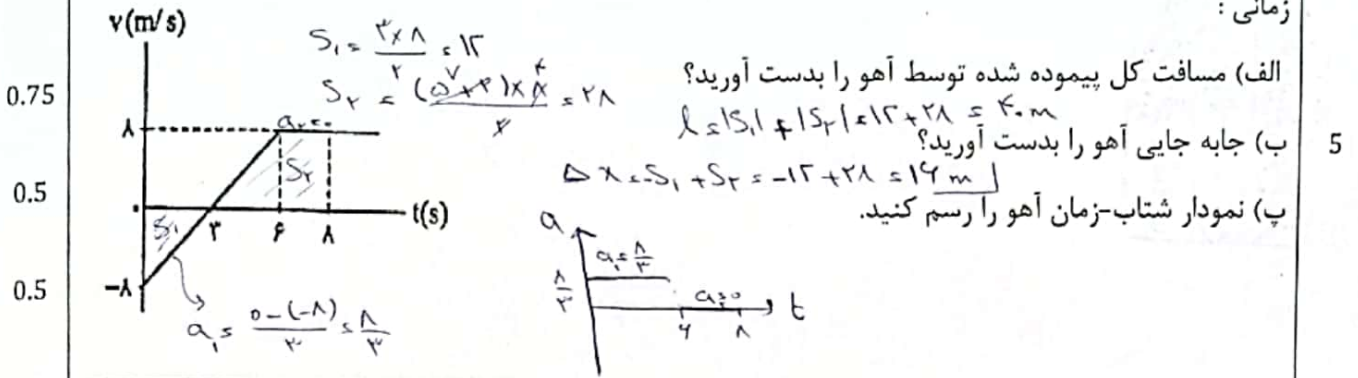 زمانی :
5
الف) مسافت کل پیموده شده توسط آهو را بدست آورید؟
0.75
l = |S۱| + |S۲| = ۱۲ + ۲۸ = ۴۰ m
ب) جابه جایی آهو را بدست آورید؟
0.5
Δx = -S۱ + S۲ = -۱۲ + ۲۸ = ۱۶ m
پ) نمودار شتاب-زمان آهو را رسم کنید.
0.5
v(m/s)
S۱ = ۳×۸ / ۲ = ۱۲
S۲ = (۵+۲)×۸ / ۲ = ۲۸
۸
a۲=۰
S۲
۰
t(s)
S۱
۳ ۶ ۸
-۸
a۱ = ۰-(-۸) / ۳ = ۸/۳
a
a۱ = ۸/۳
۸/۳
a۲=۰
t
۶ ۸